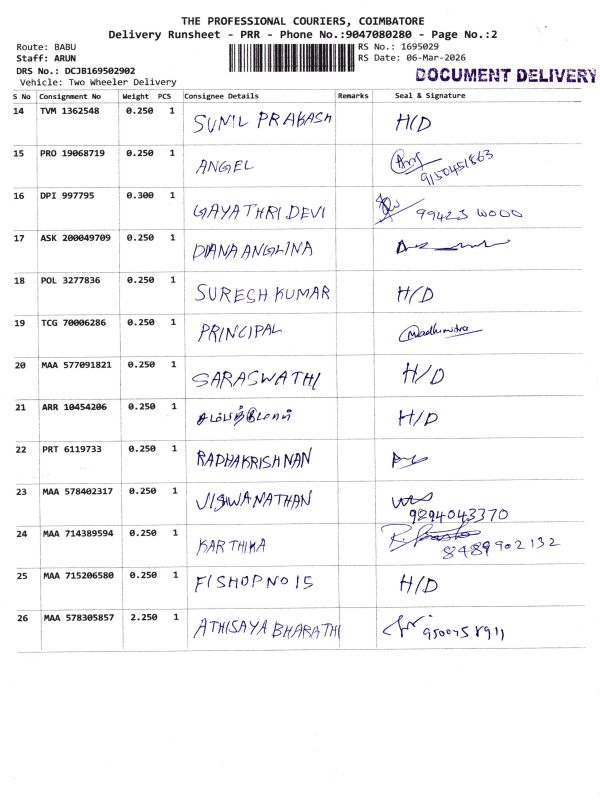 THE PROFESSIONAL COURIERS, COIMBATORE
Delivery Runsheet - PRR - Phone No.:9047080280 - Page No.:2
Route: BABU
Staff: ARUN
DRS No.: DCJB169502902
Vehicle: Two Wheeler Delivery
RS No.: 1695029
RS Date: 06-Mar-2026
DOCUMENT DELIVERY
S No Consignment No Weight PCS Consignee Details Remarks Seal & Signature
14 TVM 1362548 0.250 1 SUNIL PRAKASH H/D
15 PRO 19068719 0.250 1 ANGEL 9150451863
16 DPI 997795 0.300 1 GAYATHRI DEVI 99423 W000
17 ASK 200049709 0.250 1 DIANA ANGLINA
18 POL 3277836 0.250 1 SURESH KUMAR H/D
19 TCG 70006286 0.250 1 PRINCIPAL Madhumitra
20 MAA 577091821 0.250 1 SARASWATHI H/D
21 ARR 10454206 0.250 1 H/D
22 PRT 6119733 0.250 1 RADHAKRISHNAN
23 MAA 578402317 0.250 1 VISHWANATHAN 9894043370
24 MAA 714389594 0.250 1 KARTHIKA 8489902132
25 MAA 715206580 0.250 1 FISHOP NO 15 H/D
26 MAA 578305857 2.250 1 ATHISAYA BHARATHI